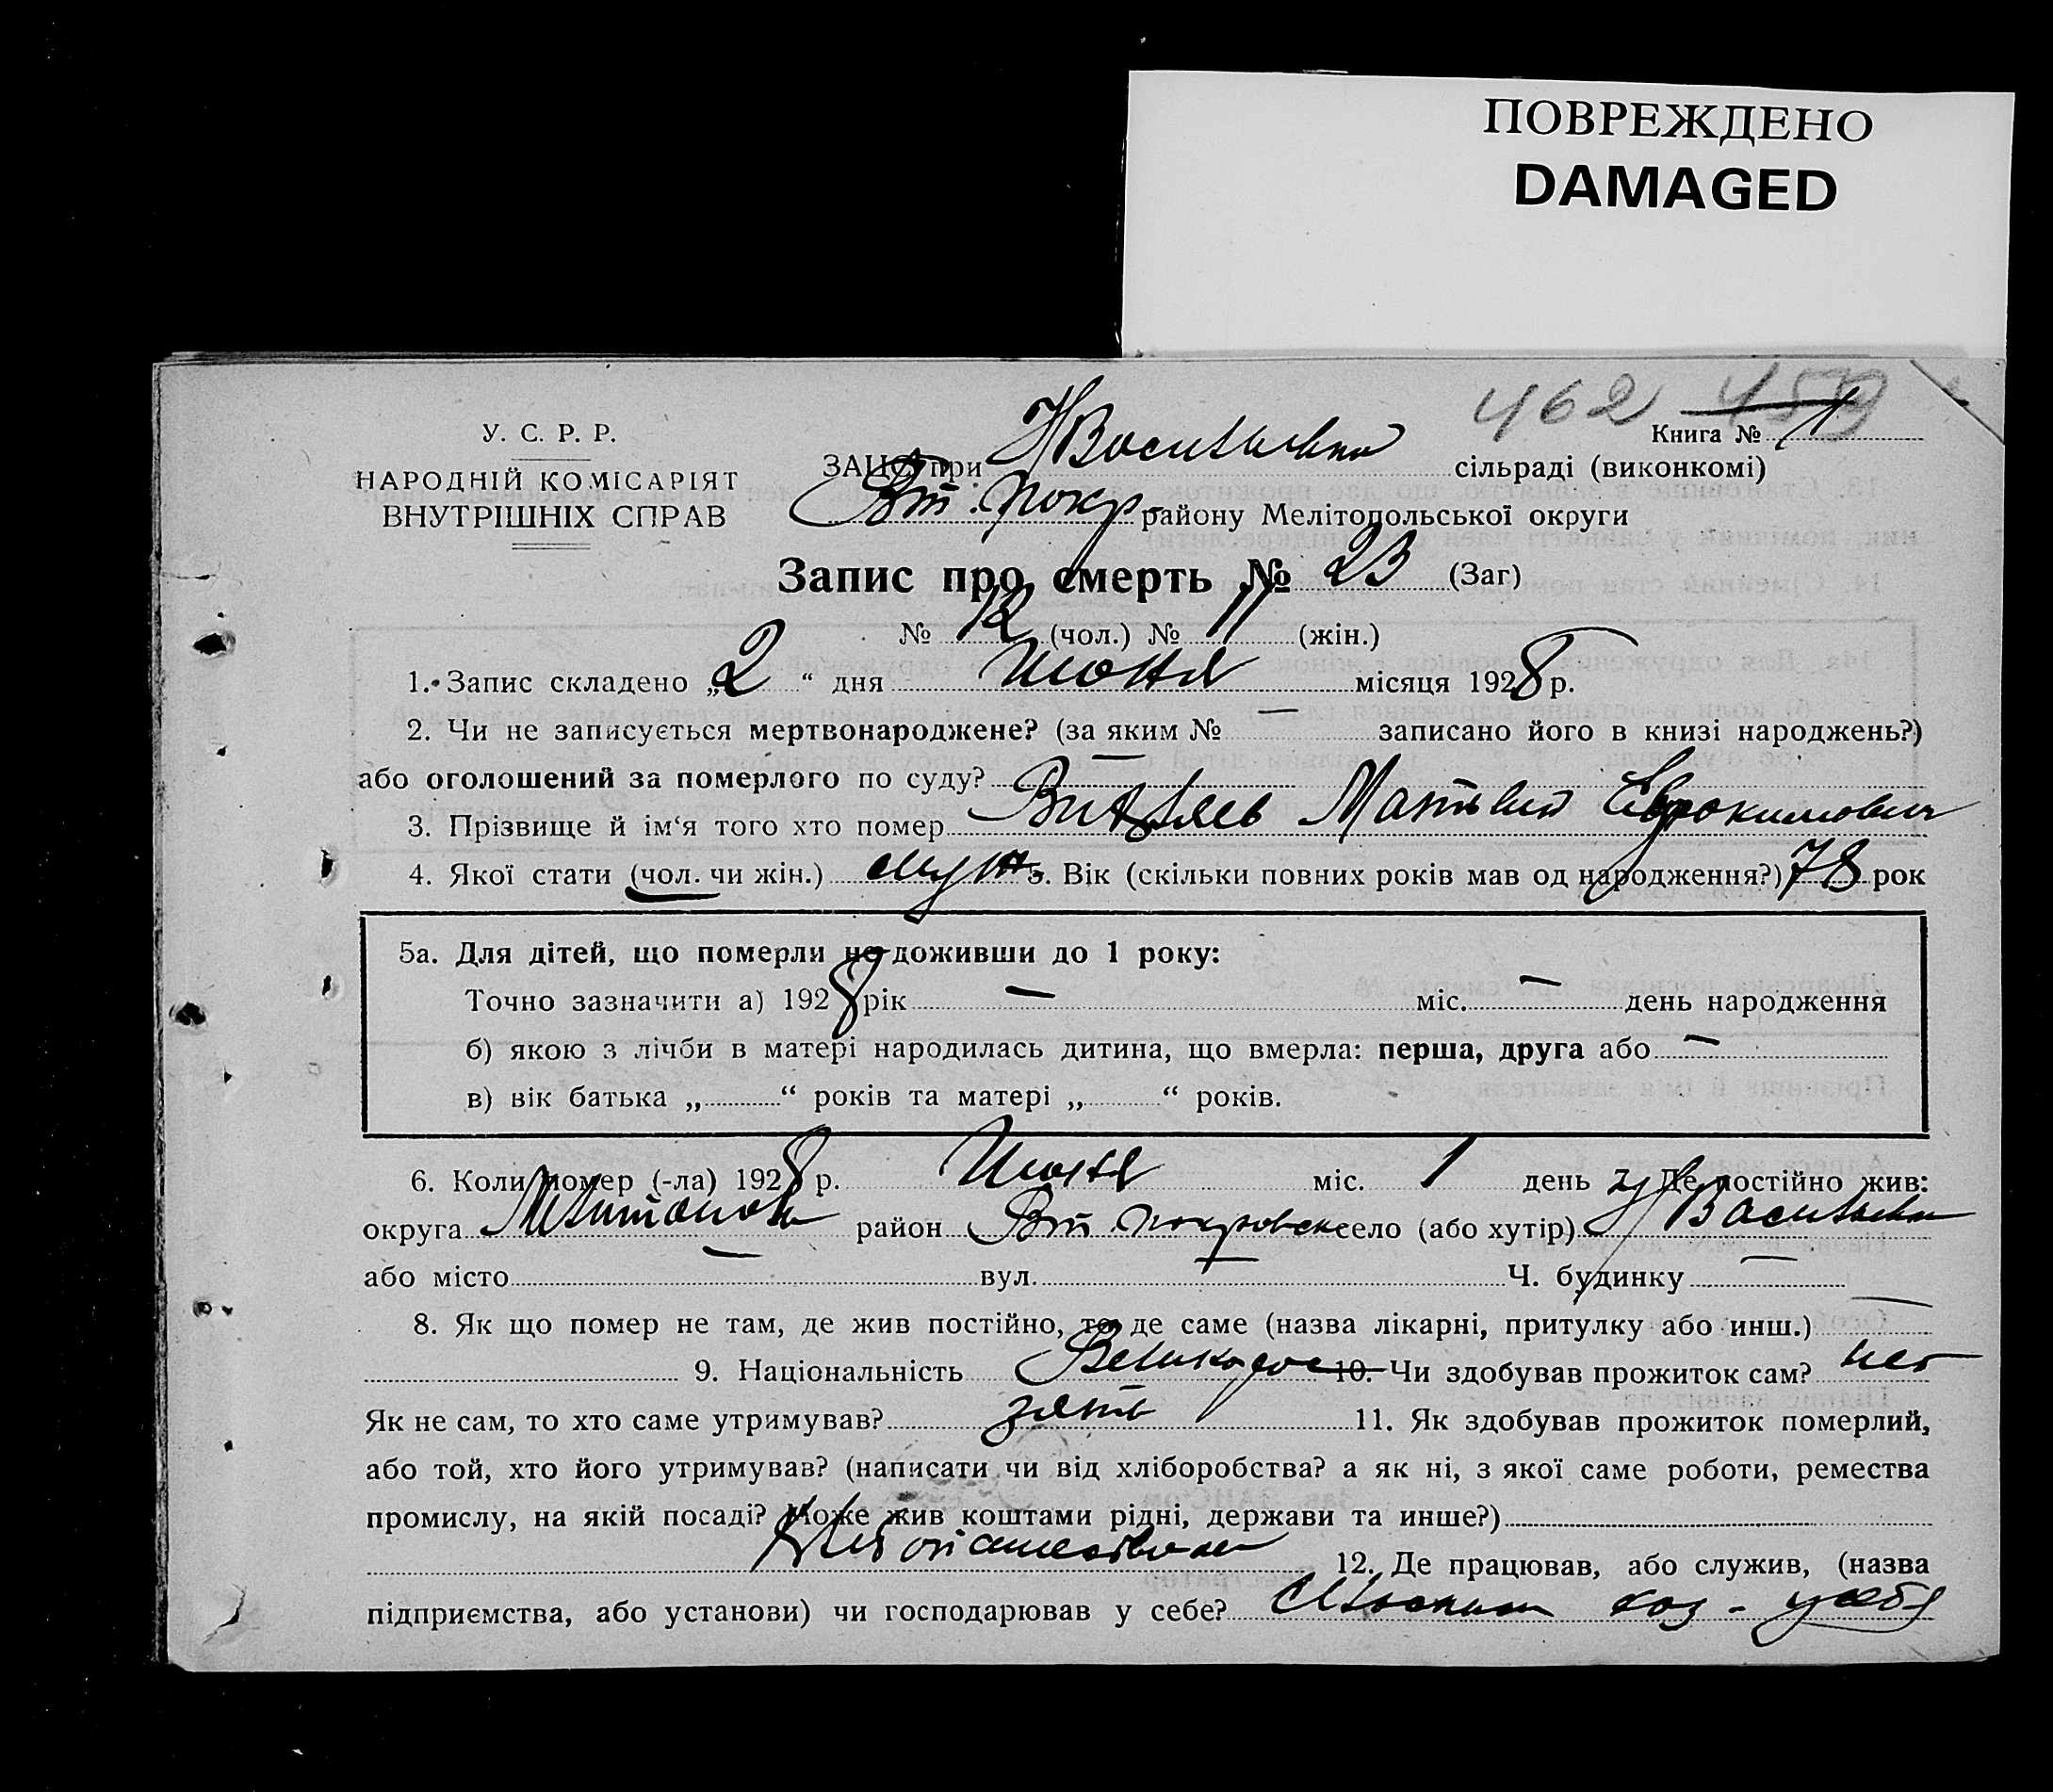 ПОВРЕЖДЕНО
DAMAGED
462 459
У. С. Р. Р.
НАРОДНІЙ КОМІСАРІЯТ
ВНУТРІШНІХ СПРАВ
Книга № 1
ЗАЦС при НВасильевка сільраді (виконкомі)
Вт. покр. району Мелітопольської округи
Запис про смерть № 23 (Заг)
№ 12 (чол.) № 11 (жін.)
1. Запис складено „2“ дня Июня місяця 1928 р.
2. Чи не записується мертвонароджене? (за яким № — записано його в книзі народжень?)
або оголошений за померлого по суду? —
3. Прізвище й ім‘я того хто помер Матвей Евдокимович
4. Якої стати (чол. чи жін.) муж 5. Вік (скільки повних років мав од народження?) 78 рок
5а. Для дітей, що померли не доживши до 1 року:
Точно зазначити а) 1928 рік — міс. — день народження
б) якою з лічби в матері народилась дитина, що вмерла: перша, друга або —
в) вік батька „ “ років та матері „ “ років.
6. Коли помер (-ла) 1928 р. Июня міс. 1 день 7. Де постійно жив:
округа район Вт. покровск село (або хутір) Н Васильевка
або місто — вул. — Ч. будинку —
8. Як що помер не там, де жив постійно, то де саме (назва лікарні, притулку або инш.) —
9. Національність Великорос 10. Чи здобував прожиток сам? нет
Як не сам, то хто саме утримував? зять 11. Як здобував прожиток померлий,
або той, хто його утримував? (написати чи від хліборобства? а як ні, з якої саме роботи, ремества
промислу, на якій посаді? Може жив коштами рідні, держави та инше?)
Хлебопашеством 12. Де працював, або служив, (назва
підприємства, або установи) чи господарював у себе? хоз - у себя